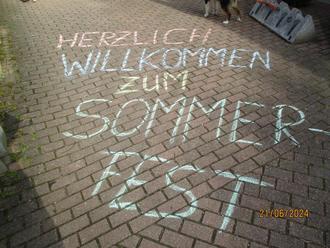 HERZLICH
WILLKOMMEN
ZUM
SOMMER-
FEST
21/06/2024